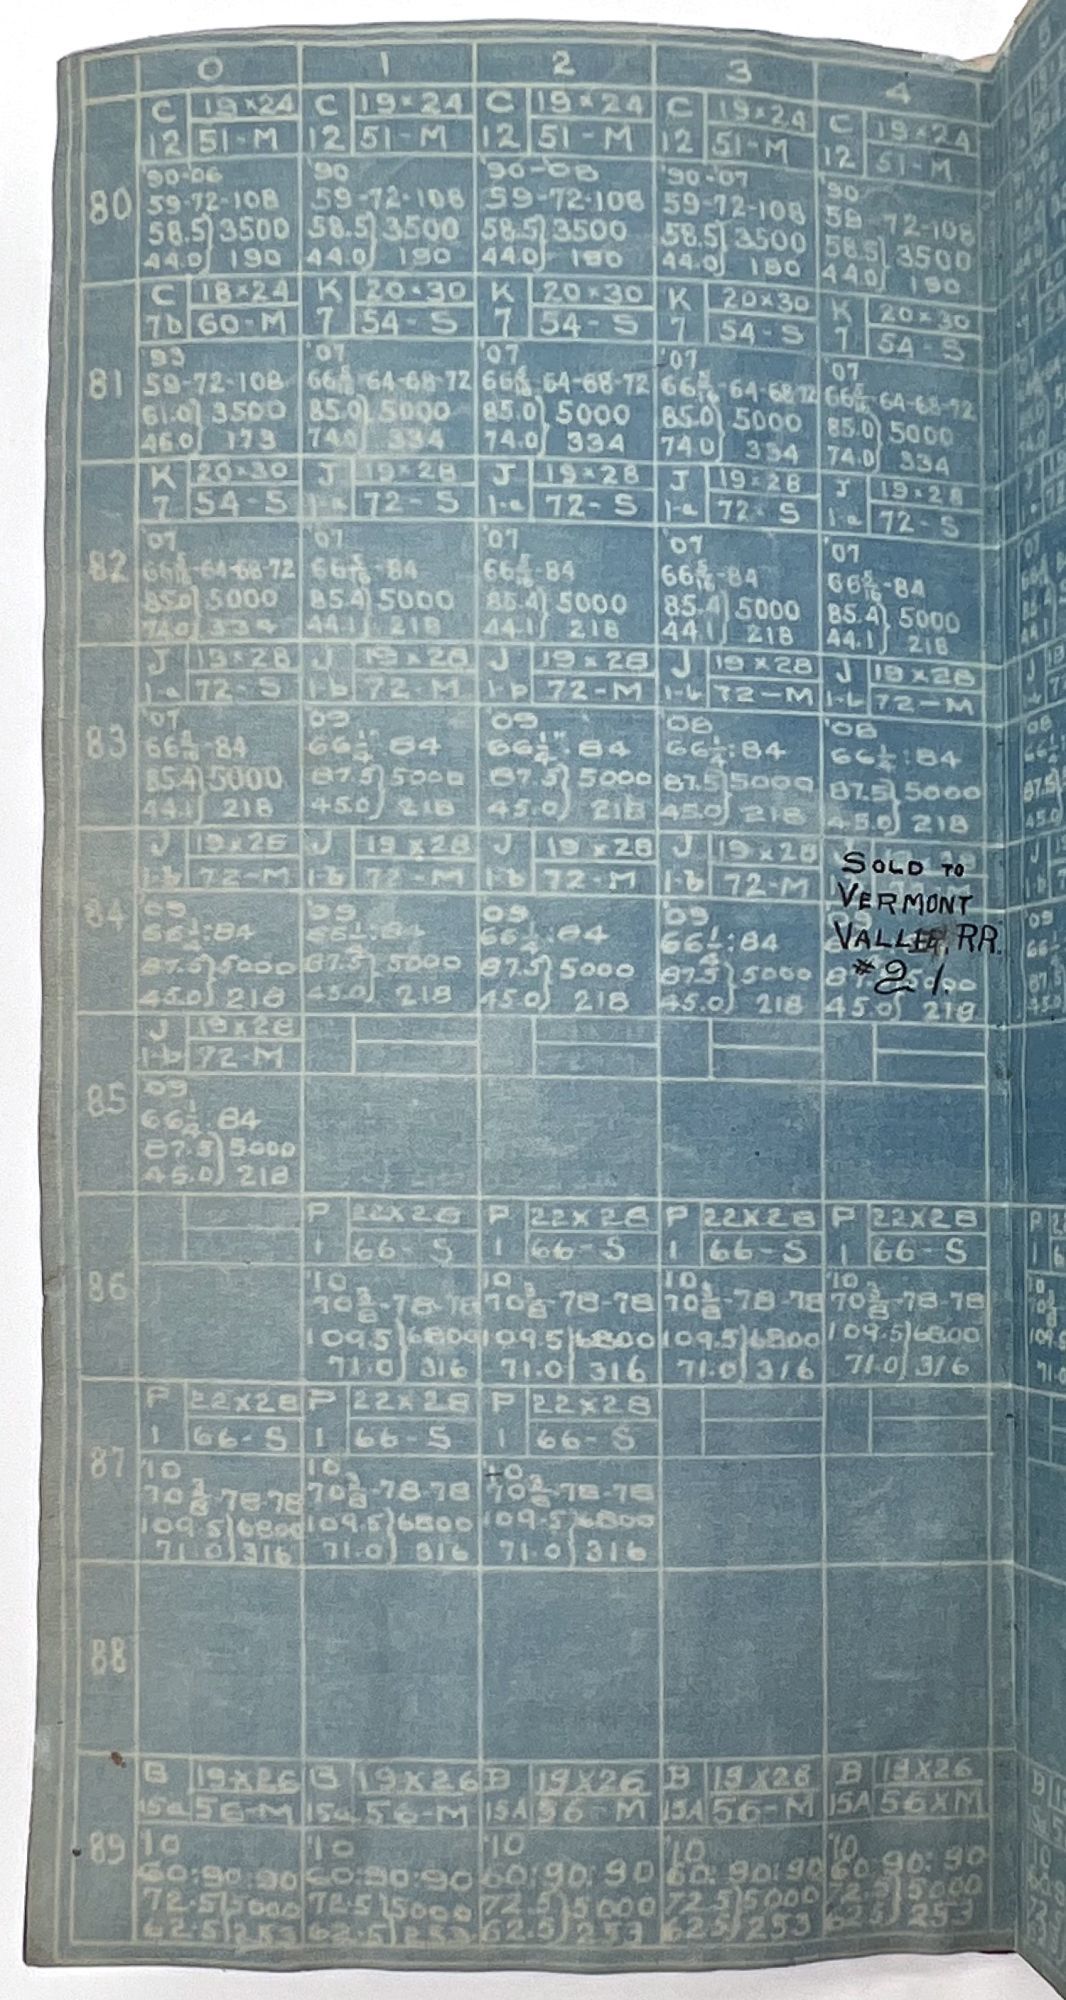 0 1 2 3 4
C 19×24 C 19×24 C 19×24 C 19×24 C 19×24
12 51-M 12 51-M 12 51-M 12 51-M 12 51-M
80
'90-06 '90 '90-08 '90-07 '90
59-72-108 59-72-108 59-72-108 59-72-108 59-72-108
58.5} 3500 58.5} 3500 58.5} 3500 58.5} 3500 58.5} 3500
44.0} 190 44.0} 190 44.0} 190 44.0} 190 44.0} 190
C 18×24 K 20×30 K 20×30 K 20×30 K 20×30
7b 60-M 7 54-S 7 54-S 7 54-S 7 54-S
81
'93 '07 '07 '07 '07
59-72-108 66 5/16-64-68-72 66 5/16-64-68-72 66 5/16-64-68-72 66 5/16-64-68-72
61.0} 3500 85.0} 5000 85.0} 5000 85.0} 5000 85.0} 5000
46.0} 173 74.0} 334 74.0} 334 74.0} 334 74.0} 334
K 20×30 J 19×28 J 19×28 J 19×28 J 19×28
7 54-S 1-a 72-S 1-a 72-S 1-a 72-S 1-a 72-S
82
'07 '07 '07 '07 '07
66 5/16-64-68-72 66 5/16-84 66 5/16-84 66 5/16-84 66 5/16-84
85.0} 5000 85.4} 5000 85.4} 5000 85.4} 5000 85.4} 5000
74.0} 334 44.1} 218 44.1} 218 44.1} 218 44.1} 218
J 19×28 J 19×28 J 19×28 J 19×28 J 19×28
1-a 72-S 1-b 72-M 1-b 72-M 1-b 72-M 1-b 72-M
83
'07 '09 '09 '08 '08
66 5/16-84 66 1/4":84 66 1/4":84 66 1/4:84 66 1/4:84
85.4} 5000 87.5} 5000 87.5} 5000 87.5} 5000 87.5} 5000
44.1} 218 45.0} 218 45.0} 218 45.0} 218 45.0} 218
J 19×28 J 19×28 J 19×28 J 19×28
1-b 72-M 1-b 72-M 1-b 72-M 1-b 72-M
SOLD TO
VERMONT
VALLEY RR.
#21.
84
'09 '09 '09 '09
66 1/4:84 66 1/4:84 66 1/4:84 66 1/4:84
87.5} 5000 87.5} 5000 87.5} 5000 87.5} 5000 87.5} 5000
45.0} 218 45.0} 218 45.0} 218 45.0} 218 45.0} 218
J 19×28
1-b 72-M
85
'09
66 1/4:84
87.5} 5000
45.0} 218
P 22×28 P 22×28 P 22×28 P 22×28
1 66-S 1 66-S 1 66-S 1 66-S
86
'10 '10 '10 '10
70 3/8-78-78 70 3/8-78-78 70 3/8-78-78 70 3/8-78-78
109.5} 6800 109.5} 6800 109.5} 6800 109.5} 6800
71.0} 316 71.0} 316 71.0} 316 71.0} 316
P 22×28 P 22×28 P 22×28
1 66-S 1 66-S 1 66-S
87
'10 '10 '10
70 3/8-78-78 70 3/8-78-78 70 3/8-78-78
109.5} 6800 109.5} 6800 109.5} 6800
71.0} 316 71.0} 316 71.0} 316
88
B 19×26 B 19×26 B 19×26 B 19×26 B 19×26
15a 56-M 15a 56-M 15A 56-M 15A 56-M 15A 56×M
89
'10 '10 '10 '10 '10
60:90:90 60:90:90 60:90:90 60:90:90 60:90:90
72.5} 5000 72.5} 5000 72.5} 5000 72.5} 5000 72.5} 5000
62.5} 253 62.5} 253 62.5} 253 62.5} 253 62.5} 253